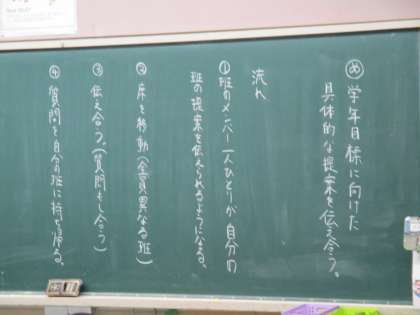 め 学年目標に向けた
具体的な提案を伝え合う。
流れ
① 班のメンバー一人ひとりが自分の
班の提案を伝えられるようになる。
② 席を移動(全員異なる班)
③ 伝え合う。(質問もし合う)
④ 質問を自分の班に持ち帰る。